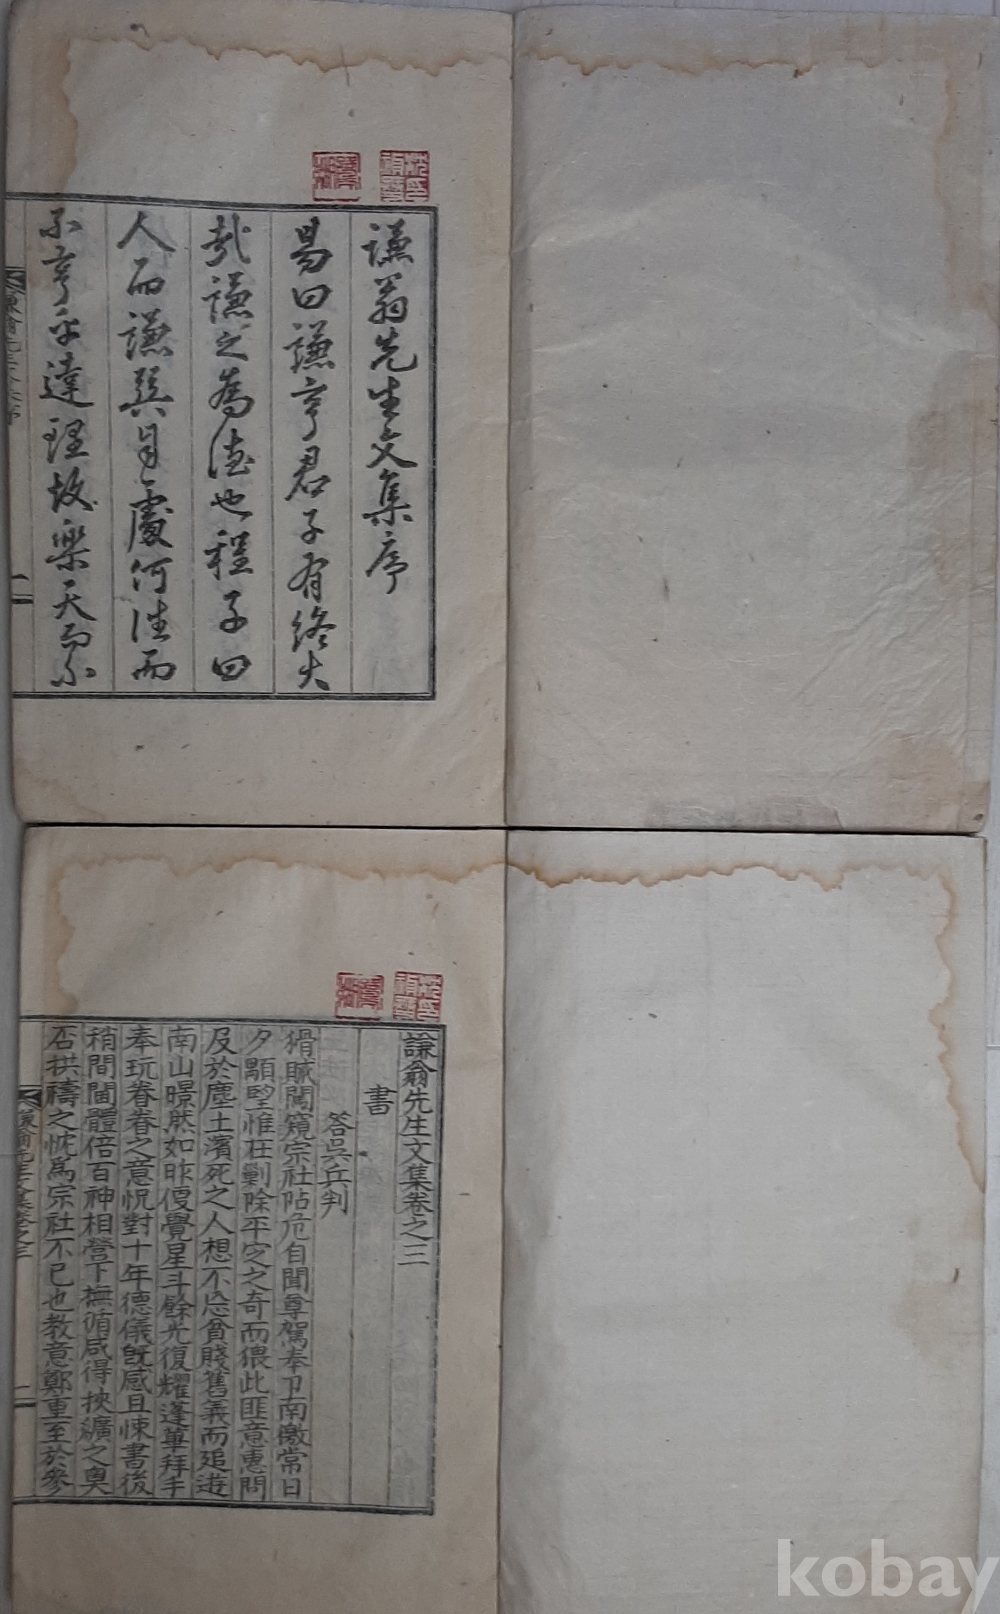 謙翁先生文集序
易曰謙亨君子有終大
哉謙之為德也程子曰
人而謙巽自處何往而
不亨乎達理故樂天而不
謙翁先生文集卷之三
書
答吳兵判
猾賊闖窺宗社阽危自聞尊駕奉卫南徼常日
夕顒望惟在剿除平定之奇而猥此匪意惠問
及於塵土濱死之人想不忘貧賤舊義而追遊
南山暻然如昨便覺星斗餘光復耀蓬蓽拜手
奉玩眷眷之意怳對十年德儀旣感且悚書後
稍間閫體倍百神相營下撫循咸得挾纊之奧
否拱禱之忱爲宗社不已也教意鄭重至於參
kobay